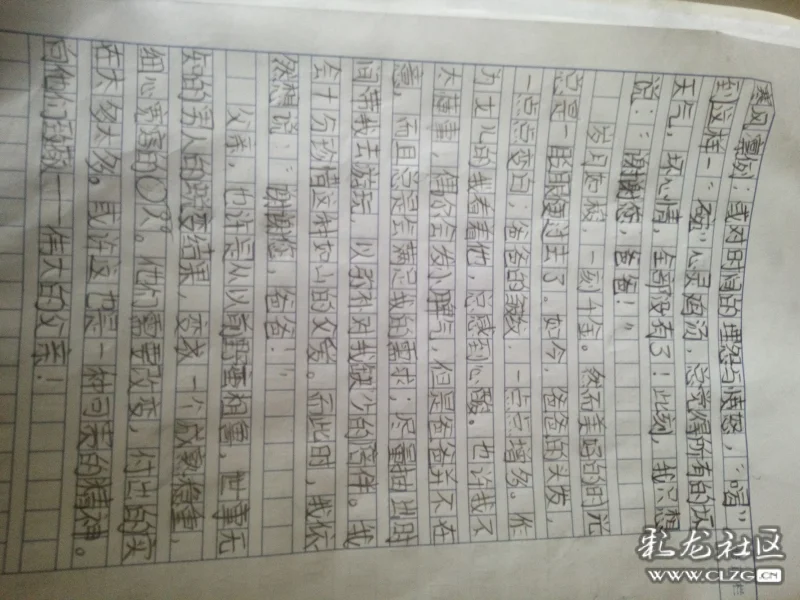 到这样一"碗"心灵鸡汤，总觉得所有的坏
天气，坏心情，全部没有了！此刻，我只想
说："谢谢您，爸爸！"
岁月如梭，一刻千金。然而美好的时光
总是一眨眼便过去了。如今，爸爸的头发，
一点点变白；爸爸的皱纹，一点点增多。作
为女儿的我看着他，总感到心酸。也许我不
太懂事，偶尔会发小脾气，但是爸爸并不在
意，而且总是会满足我的需求；尽量抽出时
间带我去游玩，以弥补对我缺少的陪伴。我
会十分珍惜这种如山的父爱。而此时，我依
然想说："谢谢您，爸爸！"
父亲，也许是从以前
的男人的蜕变结果，变成一个成熟稳重，
细心
。他们需要改变，付出的实
在太多太多。或许这也是一种可贵的精神。
向他们致敬——伟大的父亲！
彩龙社区
WWW.CLZG.CN